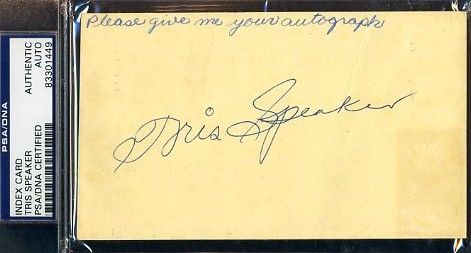 Please give me your autograph
Tris Speaker
PSA/DNA
INDEX CARD
TRIS SPEAKER
PSA/DNA CERTIFIED
AUTHENTIC
AUTO
83301449